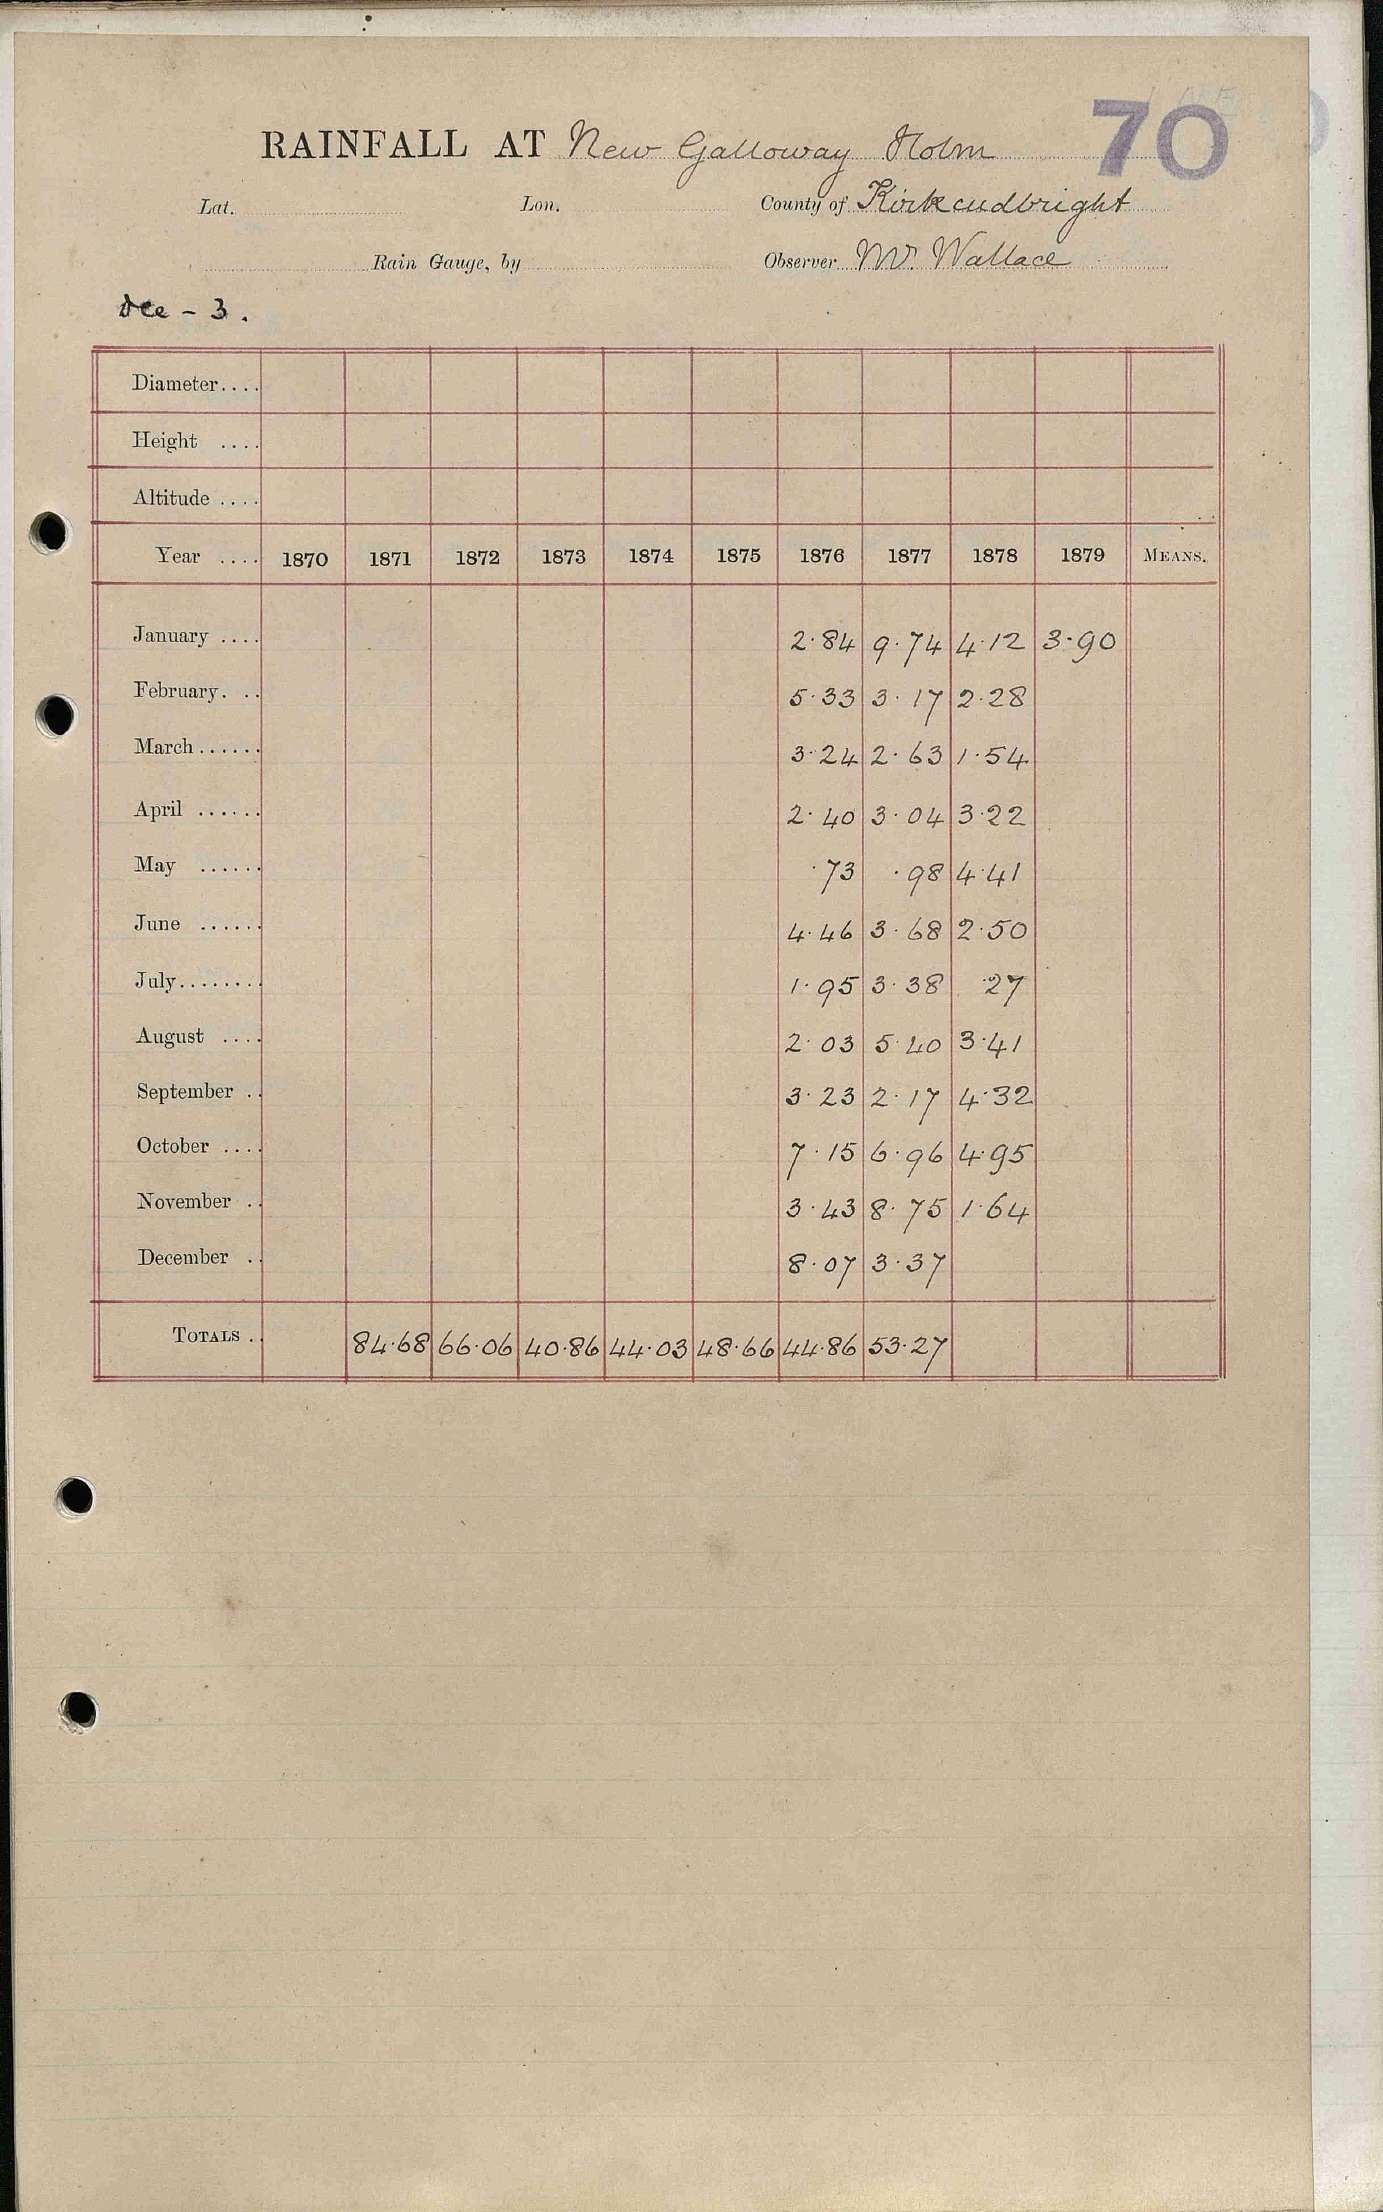 70
RAINFALL AT New Galloway Holm
Lat. Lon. County of Kirkcudbright
Rain Gauge, by Observer Mr. Wallace
Dee - 3.
Diameter....
Height ....
Altitude ....
Year .... 1870 1871 1872 1873 1874 1875 1876 1877 1878 1879 MEANS.
January .... 2.84 9.74 4.12 3.90
February. .. 5.33 3.17 2.28
March...... 3.24 2.63 1.54
April ...... 2.40 3.04 3.22
May ...... .73 .98 4.41
June ...... 4.46 3.68 2.50
July........ 1.95 3.38 .27
August .... 2.03 5.40 3.41
September .. 3.23 2.17 4.32
October .... 7.15 6.96 4.95
November .. 3.43 8.75 1.64
December .. 8.07 3.37
TOTALS .. 84.68 66.06 40.86 44.03 48.66 44.86 53.27